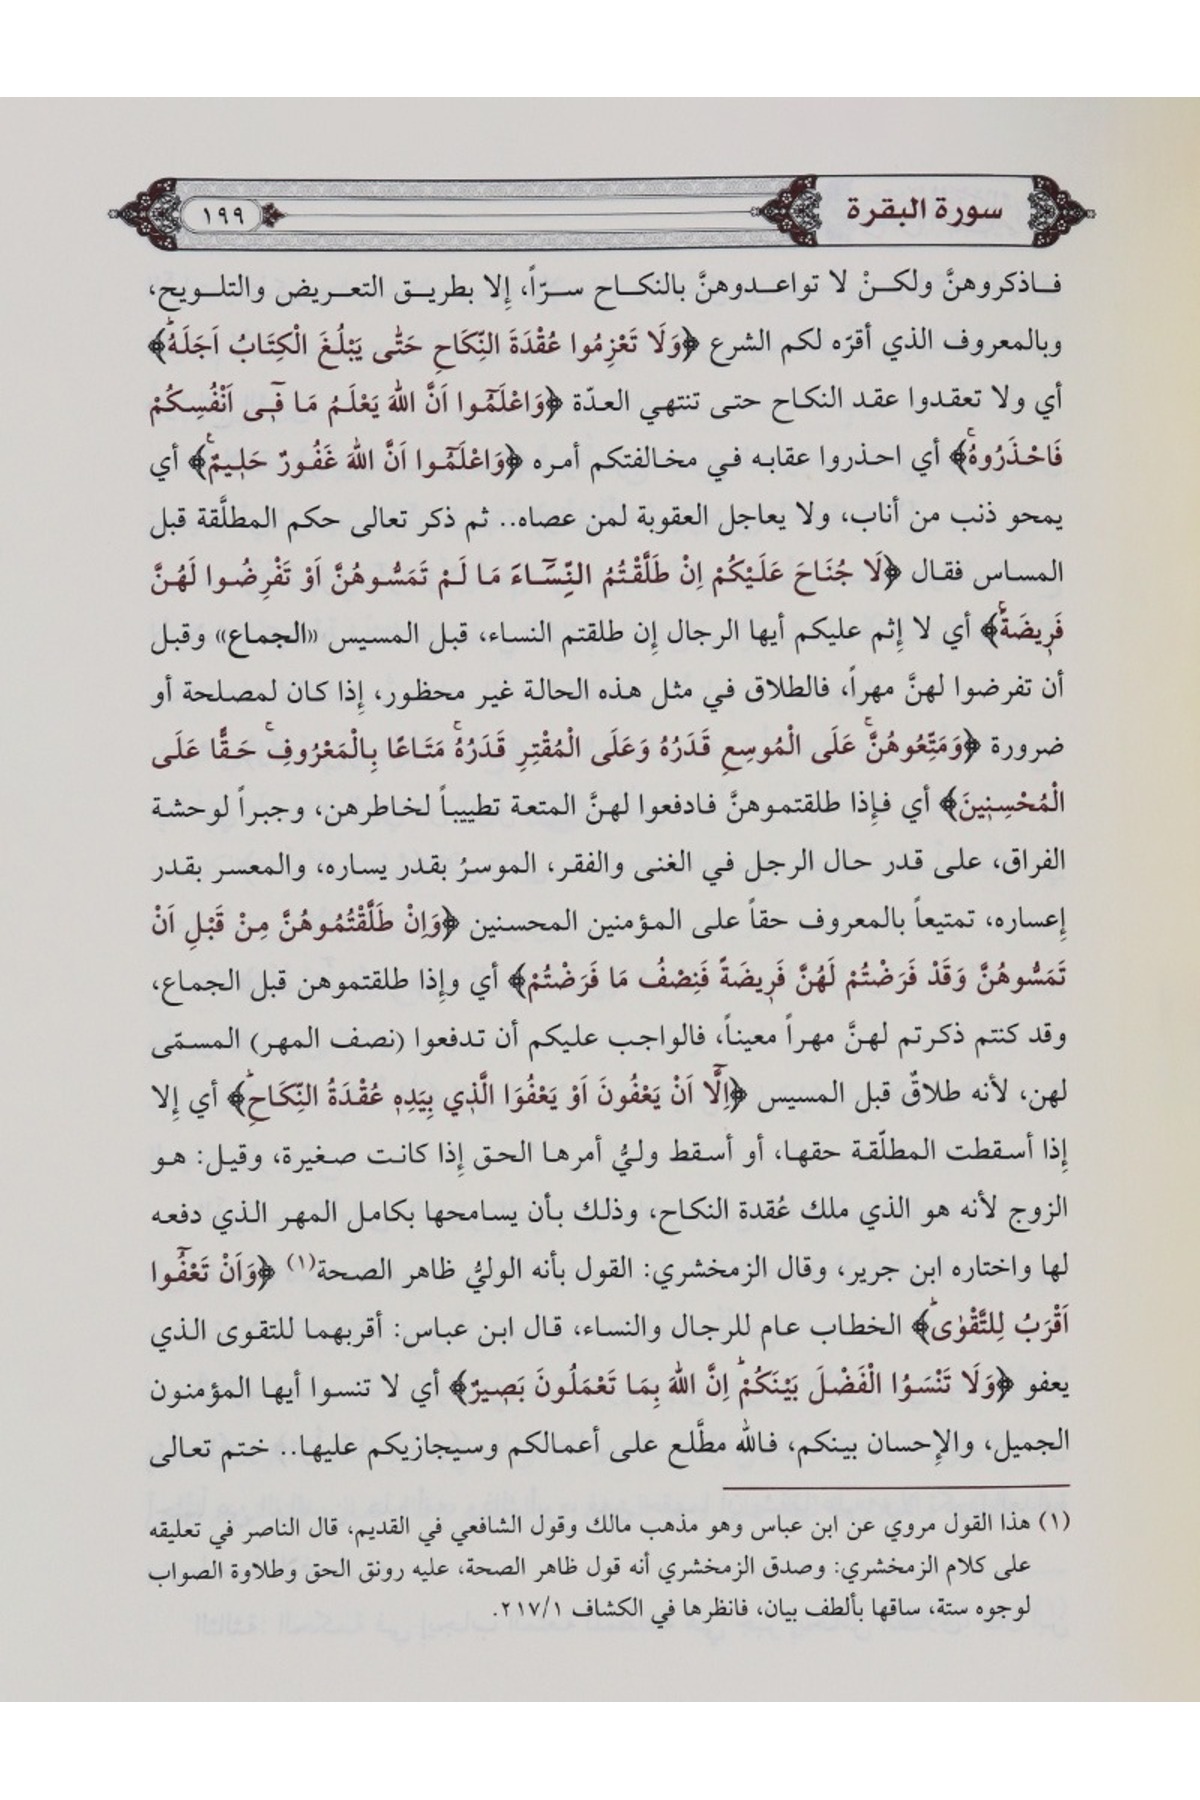 سورة البقرة
١٩٩
فاذكروهنَّ ولكنْ لا تواعدوهنَّ بالنكاح سرّاً، إلا بطريق التعريض والتلويح،
وبالمعروف الذي أقرّه لكم الشرع ﴿وَلَا تَعْزِمُوا عُقْدَةَ النِّكَاحِ حَتّٰى يَبْلُغَ الْكِتَابُ اَجَلَهُۜ﴾
أي ولا تعقدوا عقد النكاح حتى تنتهي العدّة ﴿وَاعْلَمُٓوا اَنَّ اللّٰهَ يَعْلَمُ مَا ف۪ٓي اَنْفُسِكُمْ
فَاحْذَرُوهُۚ﴾ أي احذروا عقابه في مخالفتكم أمره ﴿وَاعْلَمُٓوا اَنَّ اللّٰهَ غَفُورٌ حَل۪يمٌ۟﴾ أي
يمحو ذنب من أناب، ولا يعاجل العقوبة لمن عصاه.. ثم ذكر تعالى حكم المطلَّقة قبل
المساس فقال ﴿لَا جُنَاحَ عَلَيْكُمْ اِنْ طَلَّقْتُمُ النِّسَٓاءَ مَا لَمْ تَمَسُّوهُنَّ اَوْ تَفْرِضُوا لَهُنَّ
فَر۪يضَةًۚ﴾ أي لا إثم عليكم أيها الرجال إن طلقتم النساء، قبل المسيس «الجماع» وقبل
أن تفرضوا لهنَّ مهراً، فالطلاق في مثل هذه الحالة غير محظور، إذا كان لمصلحة أو
ضرورة ﴿وَمَتِّعُوهُنَّۚ عَلَى الْمُوسِعِ قَدَرُهُ وَعَلَى الْمُقْتِرِ قَدَرُهُۚ مَتَاعًا بِالْمَعْرُوفِۚ حَقًّا عَلَى
الْمُحْسِن۪ينَ﴾ أي فإذا طلقتموهنَّ فادفعوا لهنَّ المتعة تطييباً لخاطرهن، وجبراً لوحشة
الفراق، على قدر حال الرجل في الغنى والفقر، الموسرُ بقدر يساره، والمعسر بقدر
إعساره، تمتيعاً بالمعروف حقاً على المؤمنين المحسنين ﴿وَاِنْ طَلَّقْتُمُوهُنَّ مِنْ قَبْلِ اَنْ
تَمَسُّوهُنَّ وَقَدْ فَرَضْتُمْ لَهُنَّ فَر۪يضَةً فَنِصْفُ مَا فَرَضْتُمْ﴾ أي وإذا طلقتموهن قبل الجماع،
وقد كنتم ذكرتم لهنَّ مهراً معيناً، فالواجب عليكم أن تدفعوا (نصف المهر) المسمّى
لهن، لأنه طلاقٌ قبل المسيس ﴿اِلَّٓا اَنْ يَعْفُونَ اَوْ يَعْفُوَا الَّذ۪ي بِيَدِه۪ عُقْدَةُ النِّكَاحِۜ﴾ أي إلا
إذا أسقطت المطلّقة حقها، أو أسقط وليُّ أمرها الحق إذا كانت صغيرة، وقيل: هو
الزوج لأنه هو الذي ملك عُقدة النكاح، وذلك بأن يسامحها بكامل المهر الذي دفعه
لها واختاره ابن جرير، وقال الزمخشري: القول بأنه الوليُّ ظاهر الصحة(١) ﴿وَاَنْ تَعْفُٓوا
اَقْرَبُ لِلتَّقْوٰىۜ﴾ الخطاب عام للرجال والنساء، قال ابن عباس: أقربهما للتقوى الذي
يعفو ﴿وَلَا تَنْسَوُا الْفَضْلَ بَيْنَكُمْۜ اِنَّ اللّٰهَ بِمَا تَعْمَلُونَ بَص۪يرٌ﴾ أي لا تنسوا أيها المؤمنون
الجميل، والإحسان بينكم، فالله مطَّلع على أعمالكم وسيجازيكم عليها.. ختم تعالى
(١) هذا القول مروي عن ابن عباس وهو مذهب مالك وقول الشافعي في القديم، قال الناصر في تعليقه
على كلام الزمخشري: وصدق الزمخشري أنه قول ظاهر الصحة، عليه رونق الحق وطلاوة الصواب
لوجوه ستة، ساقها بألطف بيان، فانظرها في الكشاف ٢١٧/١.